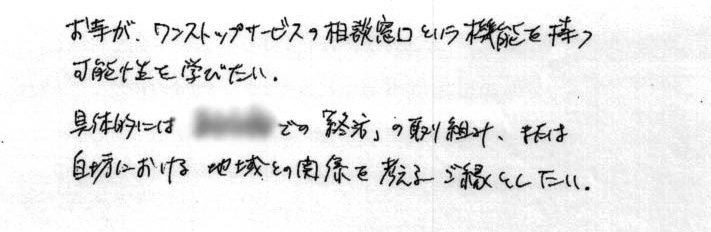 お寺が、ワンストップサービスの相談窓口という機能を持つ
可能性を学びたい。
具体的には での「終活」の取り組み、または
自坊における 地域との関係を考える ご縁としたい。